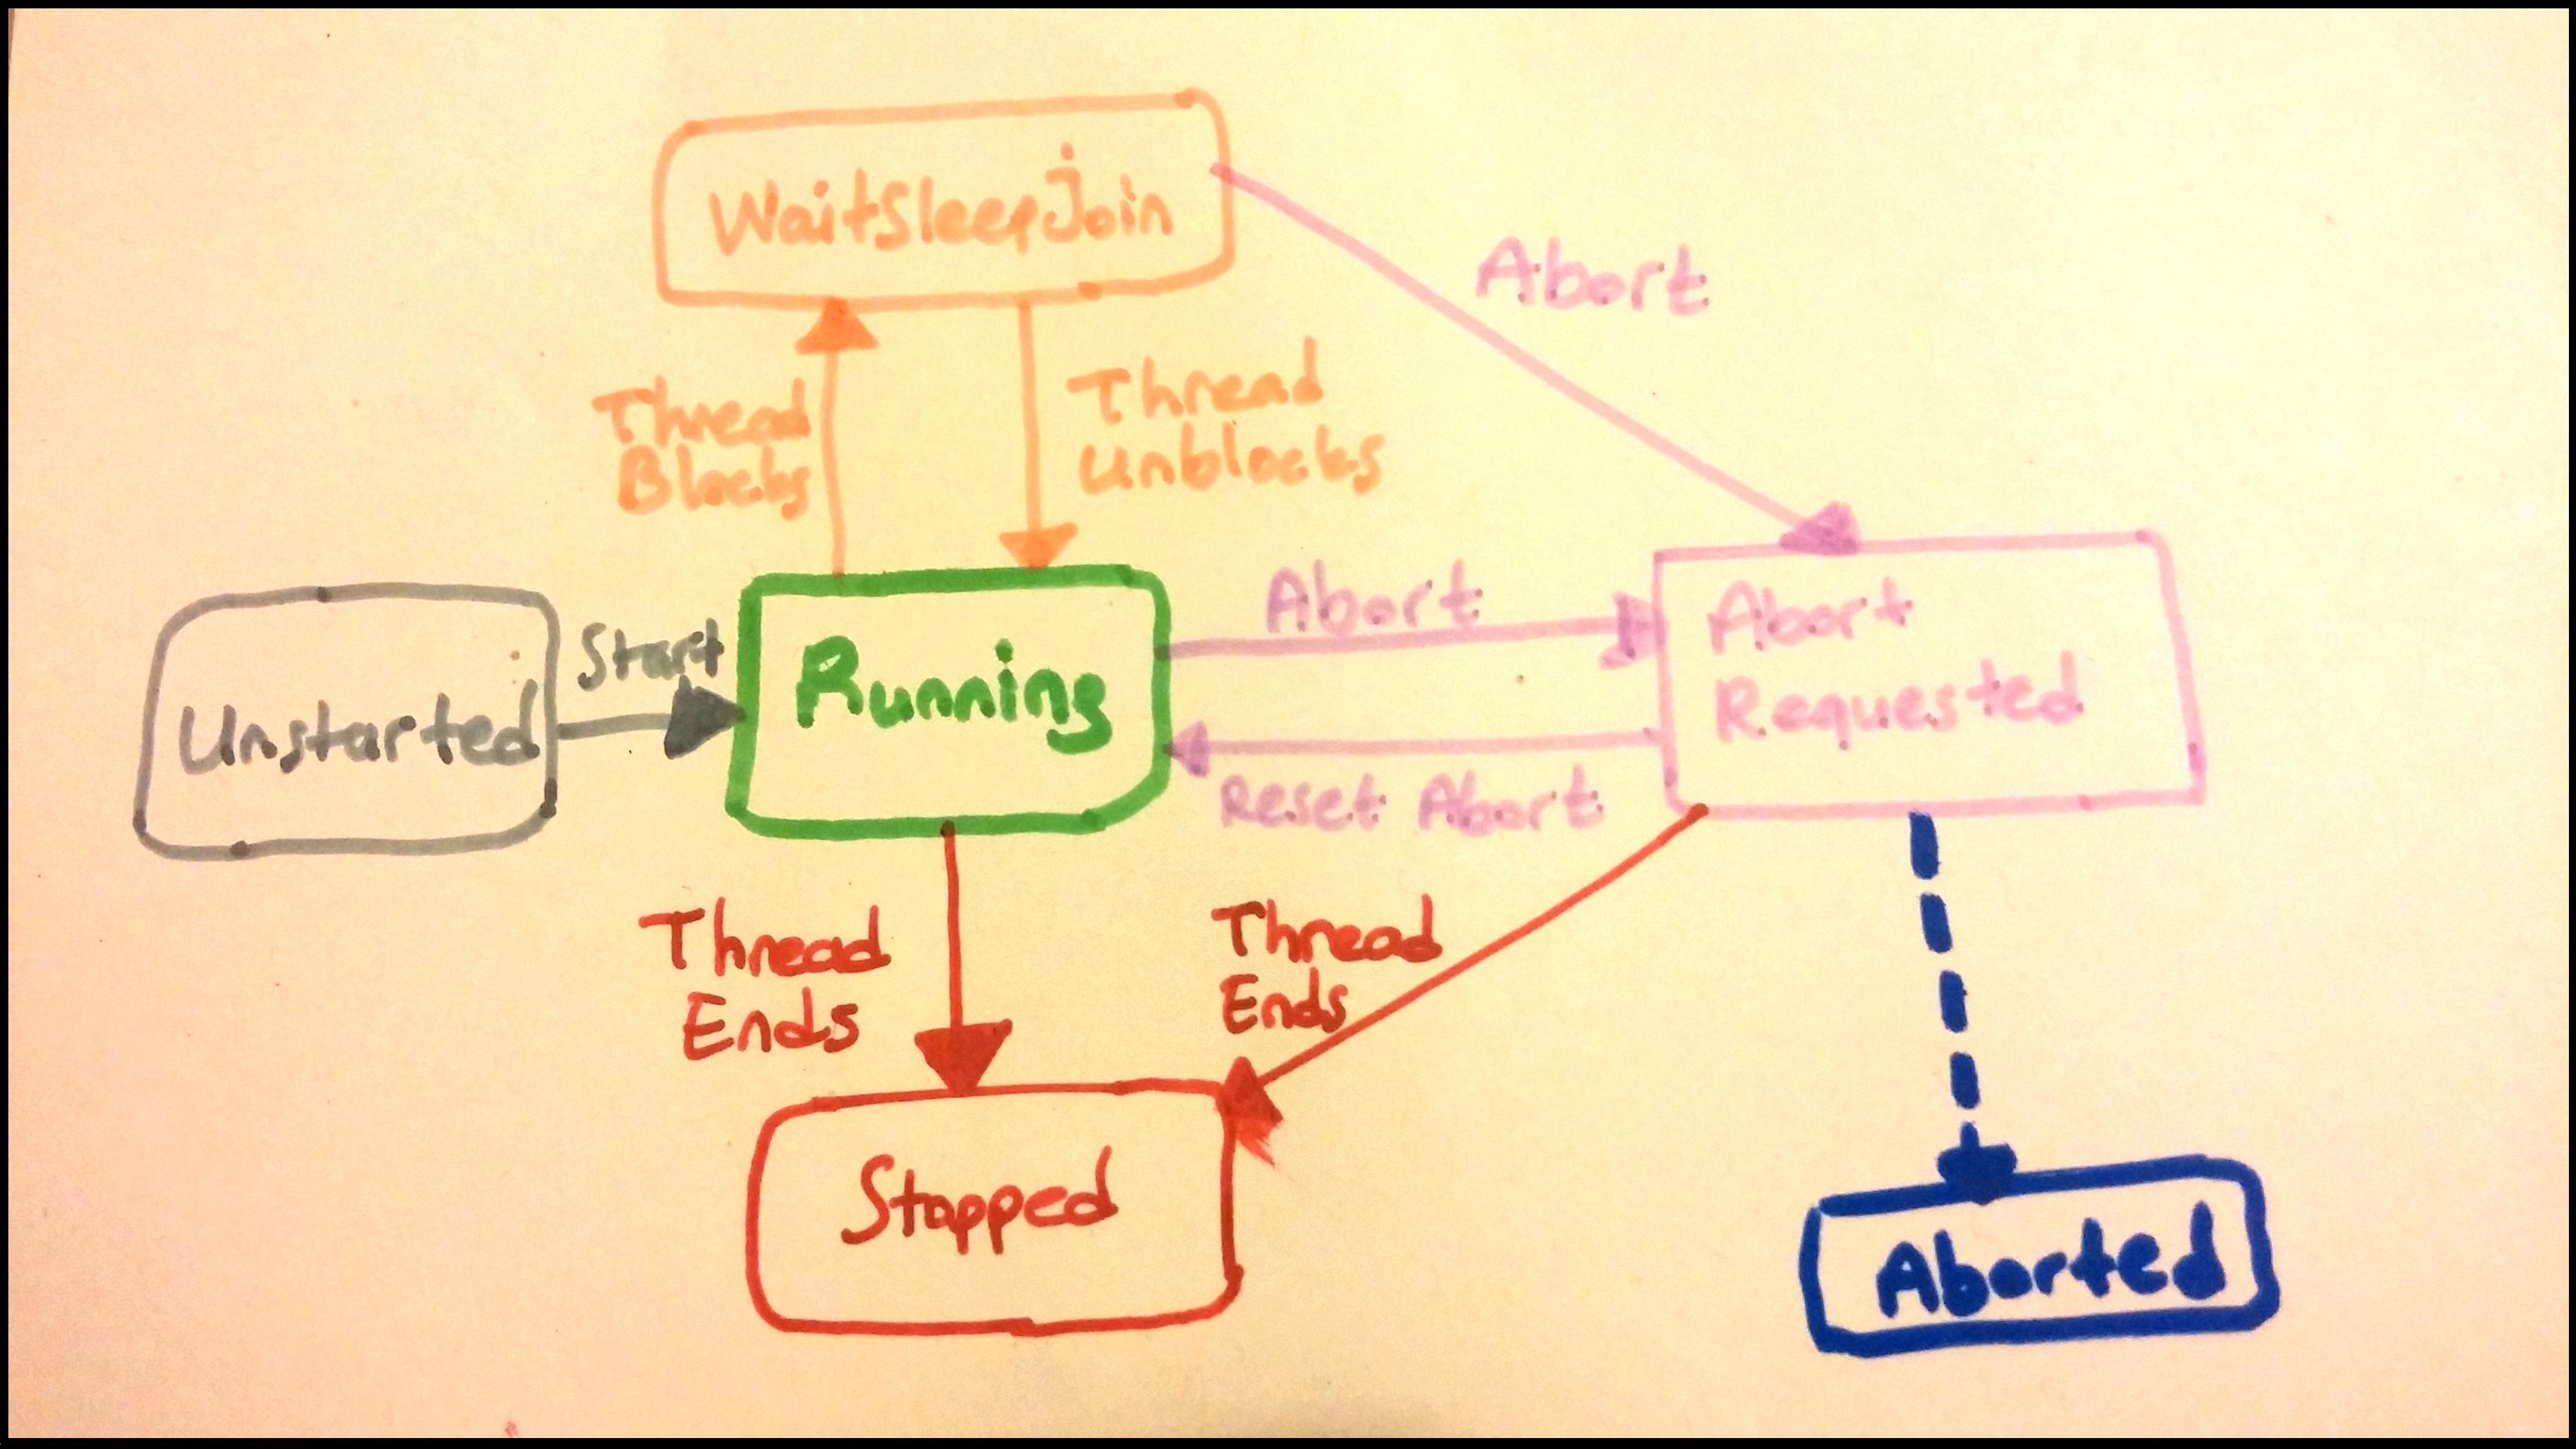 WaitSleepJoin
Abort
Thread
Blocks
Thread
Unblocks
Unstarted
Start
Running
Abort
Abort
Requested
Reset Abort
Thread
Ends
Thread
Ends
Stopped
Aborted